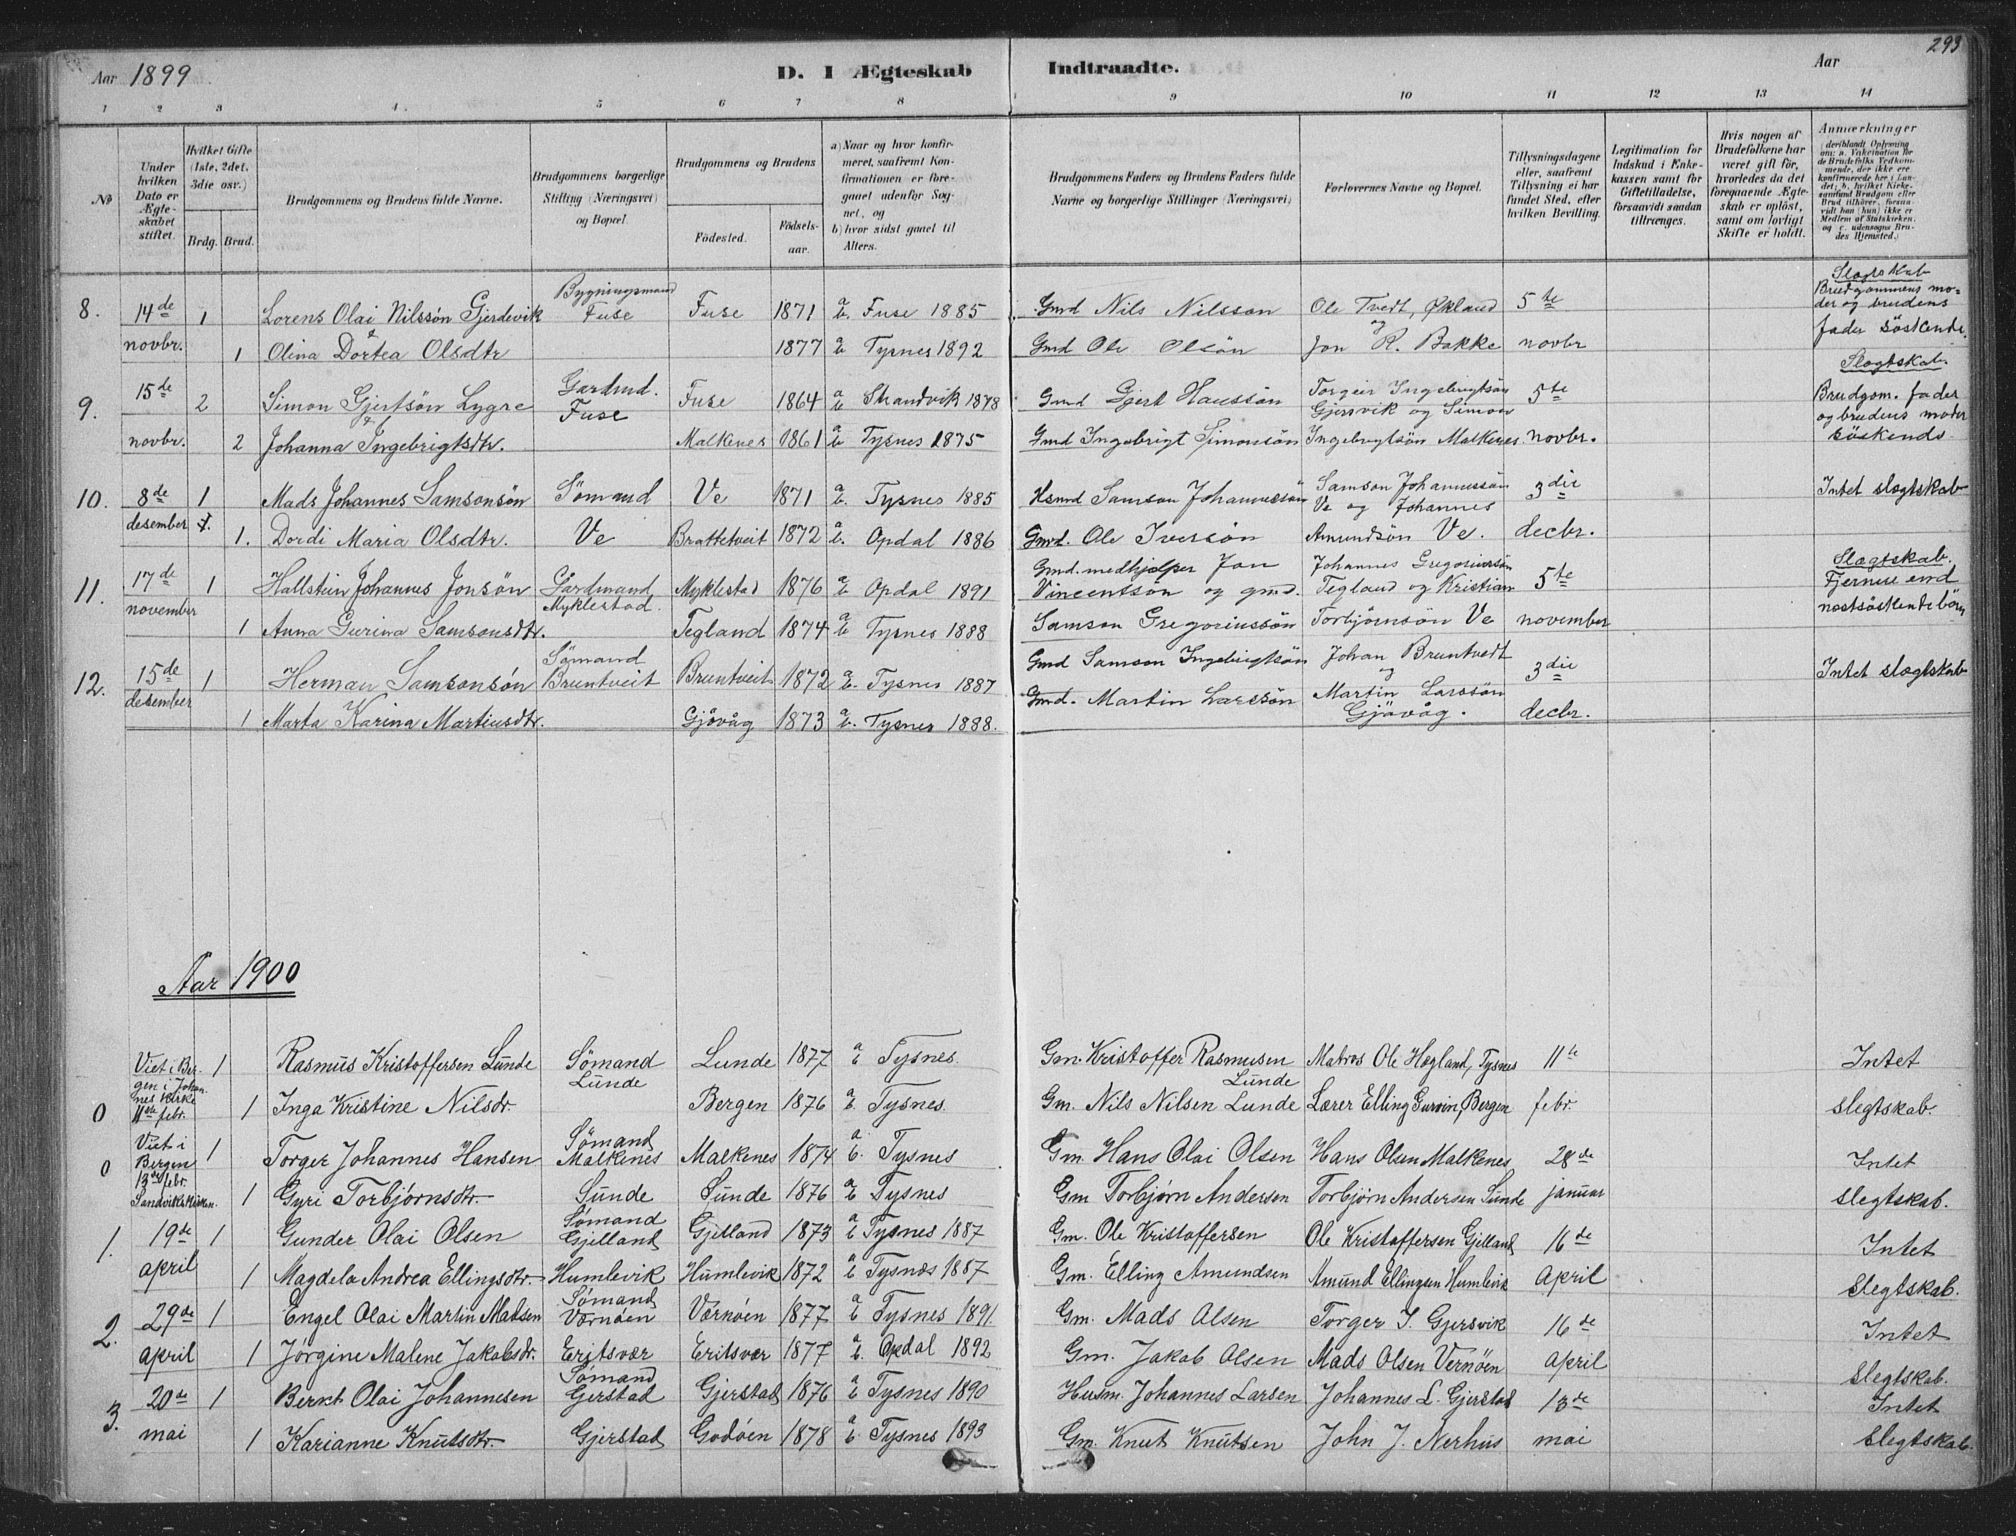 293
Aar 1899
D. I Ægteskab Indtraadte.
Aar
1 2 3 4 5 6 7 8 9 10 11 12 13 14
No
Under hvilken Dato er Ægteskabet stiftet.
Hvilket Gifte (1ste, 2det, 3die osv.)
Brdg. Brud.
Brudgommens og Brudens fulde Navne.
Brudgommens borgerlige Stilling (Næringsvei) og Bopæl.
Brudgommens og Brudens
Fødested.
Fødselsaar.
a) Naar og hvor konfirmeret, saafremt Konfirmationen er foregaaet udenfor Sognet, og
b) hvor sidst gaaet til Alters.
Brudgommens Faders og Brudens Faders fulde Navne og borgerlige Stillinger (Næringsvei)
Forlovernes Navne og Bopæl.
Tillysningsdagene eller, saafremt Tillysning ei har fundet Sted, efter hvilken Bevilling.
Legitimation for Indskud i Enkekassen samt for Giftetilladelse, forsaavidt saadan tiltrænges.
Hvis nogen af Brudefolkene har været gift før, hvorledes da det foregaaende Ægteskab er opløst, samt om lovligt Skifte er holdt.
Anmærkninger (deriblandt Oplysning om: a. Vakcination for de Brudefolks Vedkommende, der ikke ere konfirmerede her i Landet; b. hvilket Kirkesamfund Brudgom eller Brud tilhører, forsaavidt han (hun) ikke er Medlem af Statskirken, og c. udensogns Brudes Hjemsted.)
8. 14de novbr. 1 Lorens Olai Nilssön Gjerdevik Bygningsmand Fuse Fuse 1871 a b. Fuse 1885 Gmd Nils Nilsson Ole Tvedt, Økland 5te Slagtskab Brudgommens moder og brudens fader söskende
& og
1 Olina Dortea Olsdtr 1877 a b Tysnes 1892 Gmd Ole Olsön Jon R. Bakke novbr
9. 15de novbr. 2 Simon Gjertsön Lygre Gardmd. Fuse Fuse 1864 a b Strandvik 1878 Gmd Gjert Hanssön Torgeir Ingebrigtsön Gjersvik og Simon 5te Slagtskab Brudgom. fader og brudens moder söskende.
2 Johanna Ingebrigtsdtr. Malkenes 1861 a b Tysnes 1875 Gmd Ingebrigt Simonsön Ingebrigtsön Malkenes. novbr.
10. 8de desember 1 Mads Johannes Samsonsön Sömand Ve 1871 a b. Tysnes 1885 Hsmd Samson Johannessön Samson Johannessön Ve og Johannes 3die Intet slagtskab
1. Dordi Maria Olsdtr. Ve Brattetveit 1872 a b. Opdal 1886 Gmd. Ole Iversön Amundsön Ve. decbr.
11. 17de november 1 Hallstein Johannes Jonsön Gardmand Myklestad. Myklestad 1876 a b Opdal 1891 Gmd. medhjelper Jon Vincentsön og gmd. Johannes Gregoriussön Tegland og Kristian 5te Slagtskab. Fjernere end nestsöskendebörn
1 Anna Gurina Samsonsdtr. Tegland 1874 a b Tysnes 1888 Samson Gregoriussön Torbjörnsön Ve november
12. 15de desember 1 Herman Samsonsön Sömand Bruntveit Bruntveit 1872 a b. Tysnes 1887 Gmd Samson Ingebrigtsön Johan Bruntvedt og 3die Intet slagtskab
1 Marta Karina Martinsdtr. Gjövåg 1873 a b. Tysnes 1888. Gmd. Martin Larssön Martin Larssön Gjövåg. decbr.
Aar 1900
0 Viet i Bergen i Johannes kirke 11te febr. 1 Rasmus Kristoffersen Lunde Sömand Lunde Lunde 1877 a b Tysnes Gm. Kristoffer Rasmusen Lunde Matros Ole Hegland, Tysnes 11te Intet
1 Inga Kristine Nilsdr. Bergen 1876 a b. Tysnes. Gm. Nils Nilsen Lunde Lærer Elling Gurvin, Bergen febr. slegtskab.
0 Viet i Bergen 13de febr. Sandvikskirken. 1 Torger Johannes Hansen Sömand Malkenes Malkenes 1874 a b. Tysnes Gm. Hans Olai Olsen Hans Olsen Malkenes 28de Intet
1 Gyri Torbjørnsdtr. Sunde Sunde 1876 a b Tysnes Gm Torbjørn Andersen Torbjørn Andersen Sunde januar slegtskab.
1. 19de april 1 Gunder Olai Olsen Sömand Gjelland Gjelland 1873 a b Tysnes 1887 Gm. Ole Kristoffersen Ole Kristoffersen Gjelland 16de Intet
1 Magdela Andrea Ellingsdtr. Humlevik Humlevik 1872 a b Tysnes 1887 Gm. Elling Amundsen Amund Ellingsen Humlevik April slegtskab.
2. 29de april 1 Engel Olai Martin Madsen Sömand Værnöen Værnöen 1877 a b Tysnes 1891 Gm. Mads Olsen Torger J. Gjersvik 16de Intet
1 Jørgine Malene Jakobsdr. Eritsvær Eritsvær 1877 a b. Opdal 1892 Gm. Jakob Olsen Mads Olsen Vernöen April slegtskab.
3. 20de mai 1 Bernt Olai Johannesen Sömand Gjerstad Gjerstad 1876 a b Tysnes 1890 Husm. Johannes Larsen Johannes L. Gjerstad 13de Intet
1 Karianne Knutsdtr. Gjerstad Godöen 1878 a b. Tysnes 1893 Gm. Knut Knutsen John J. Nerhus mai slegtskab.